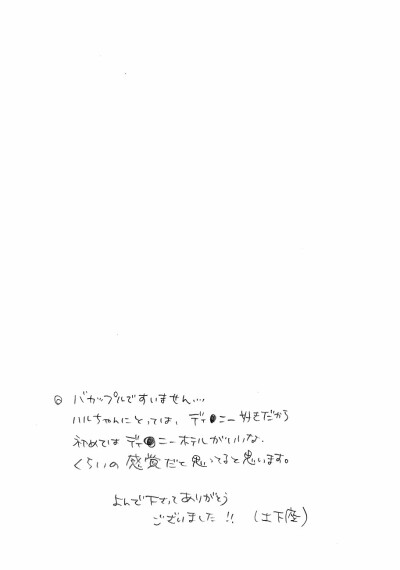 ◎ バカップルですいません....
ハルちゃんにとっては、ディ●ニー好きだから
初めてはディ●ニーホテルがいいな、
くらいの感覚だと思ってると思います。
よんで下さってありがとう
ございました!! (土下座)